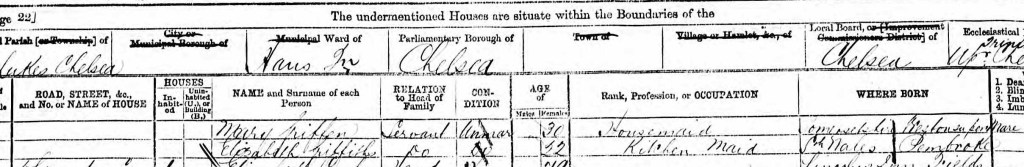 age 22]
The undermentioned Houses are situate within the Boundaries of the
l Parish [or Township] of
City or Municipal Borough of
Municipal Ward of
Parliamentary Borough of
Town of
Village or Hamlet, &c., of
Local Board, or [Improvement Commissioners District] of
Ecclesiastical
Lukes Chelsea
Hans Tn
Chelsea
Chelsea
ROAD, STREET, &c., and No. or NAME of HOUSE
HOUSES
In-habit-ed
Unin-habited (U.), or Building (B.)
NAME and Surname of each Person
RELATION to Head of Family
CON-DITION
AGE of
Males
Females
Rank, Profession, or OCCUPATION
WHERE BORN
1. Dea
2. Blin
3. Imb
4. Lun
Servant Unmar 30 Housemaid
Elizabeth Griffiths Do 22 Kitchen Maid Sth Wales Pembroke